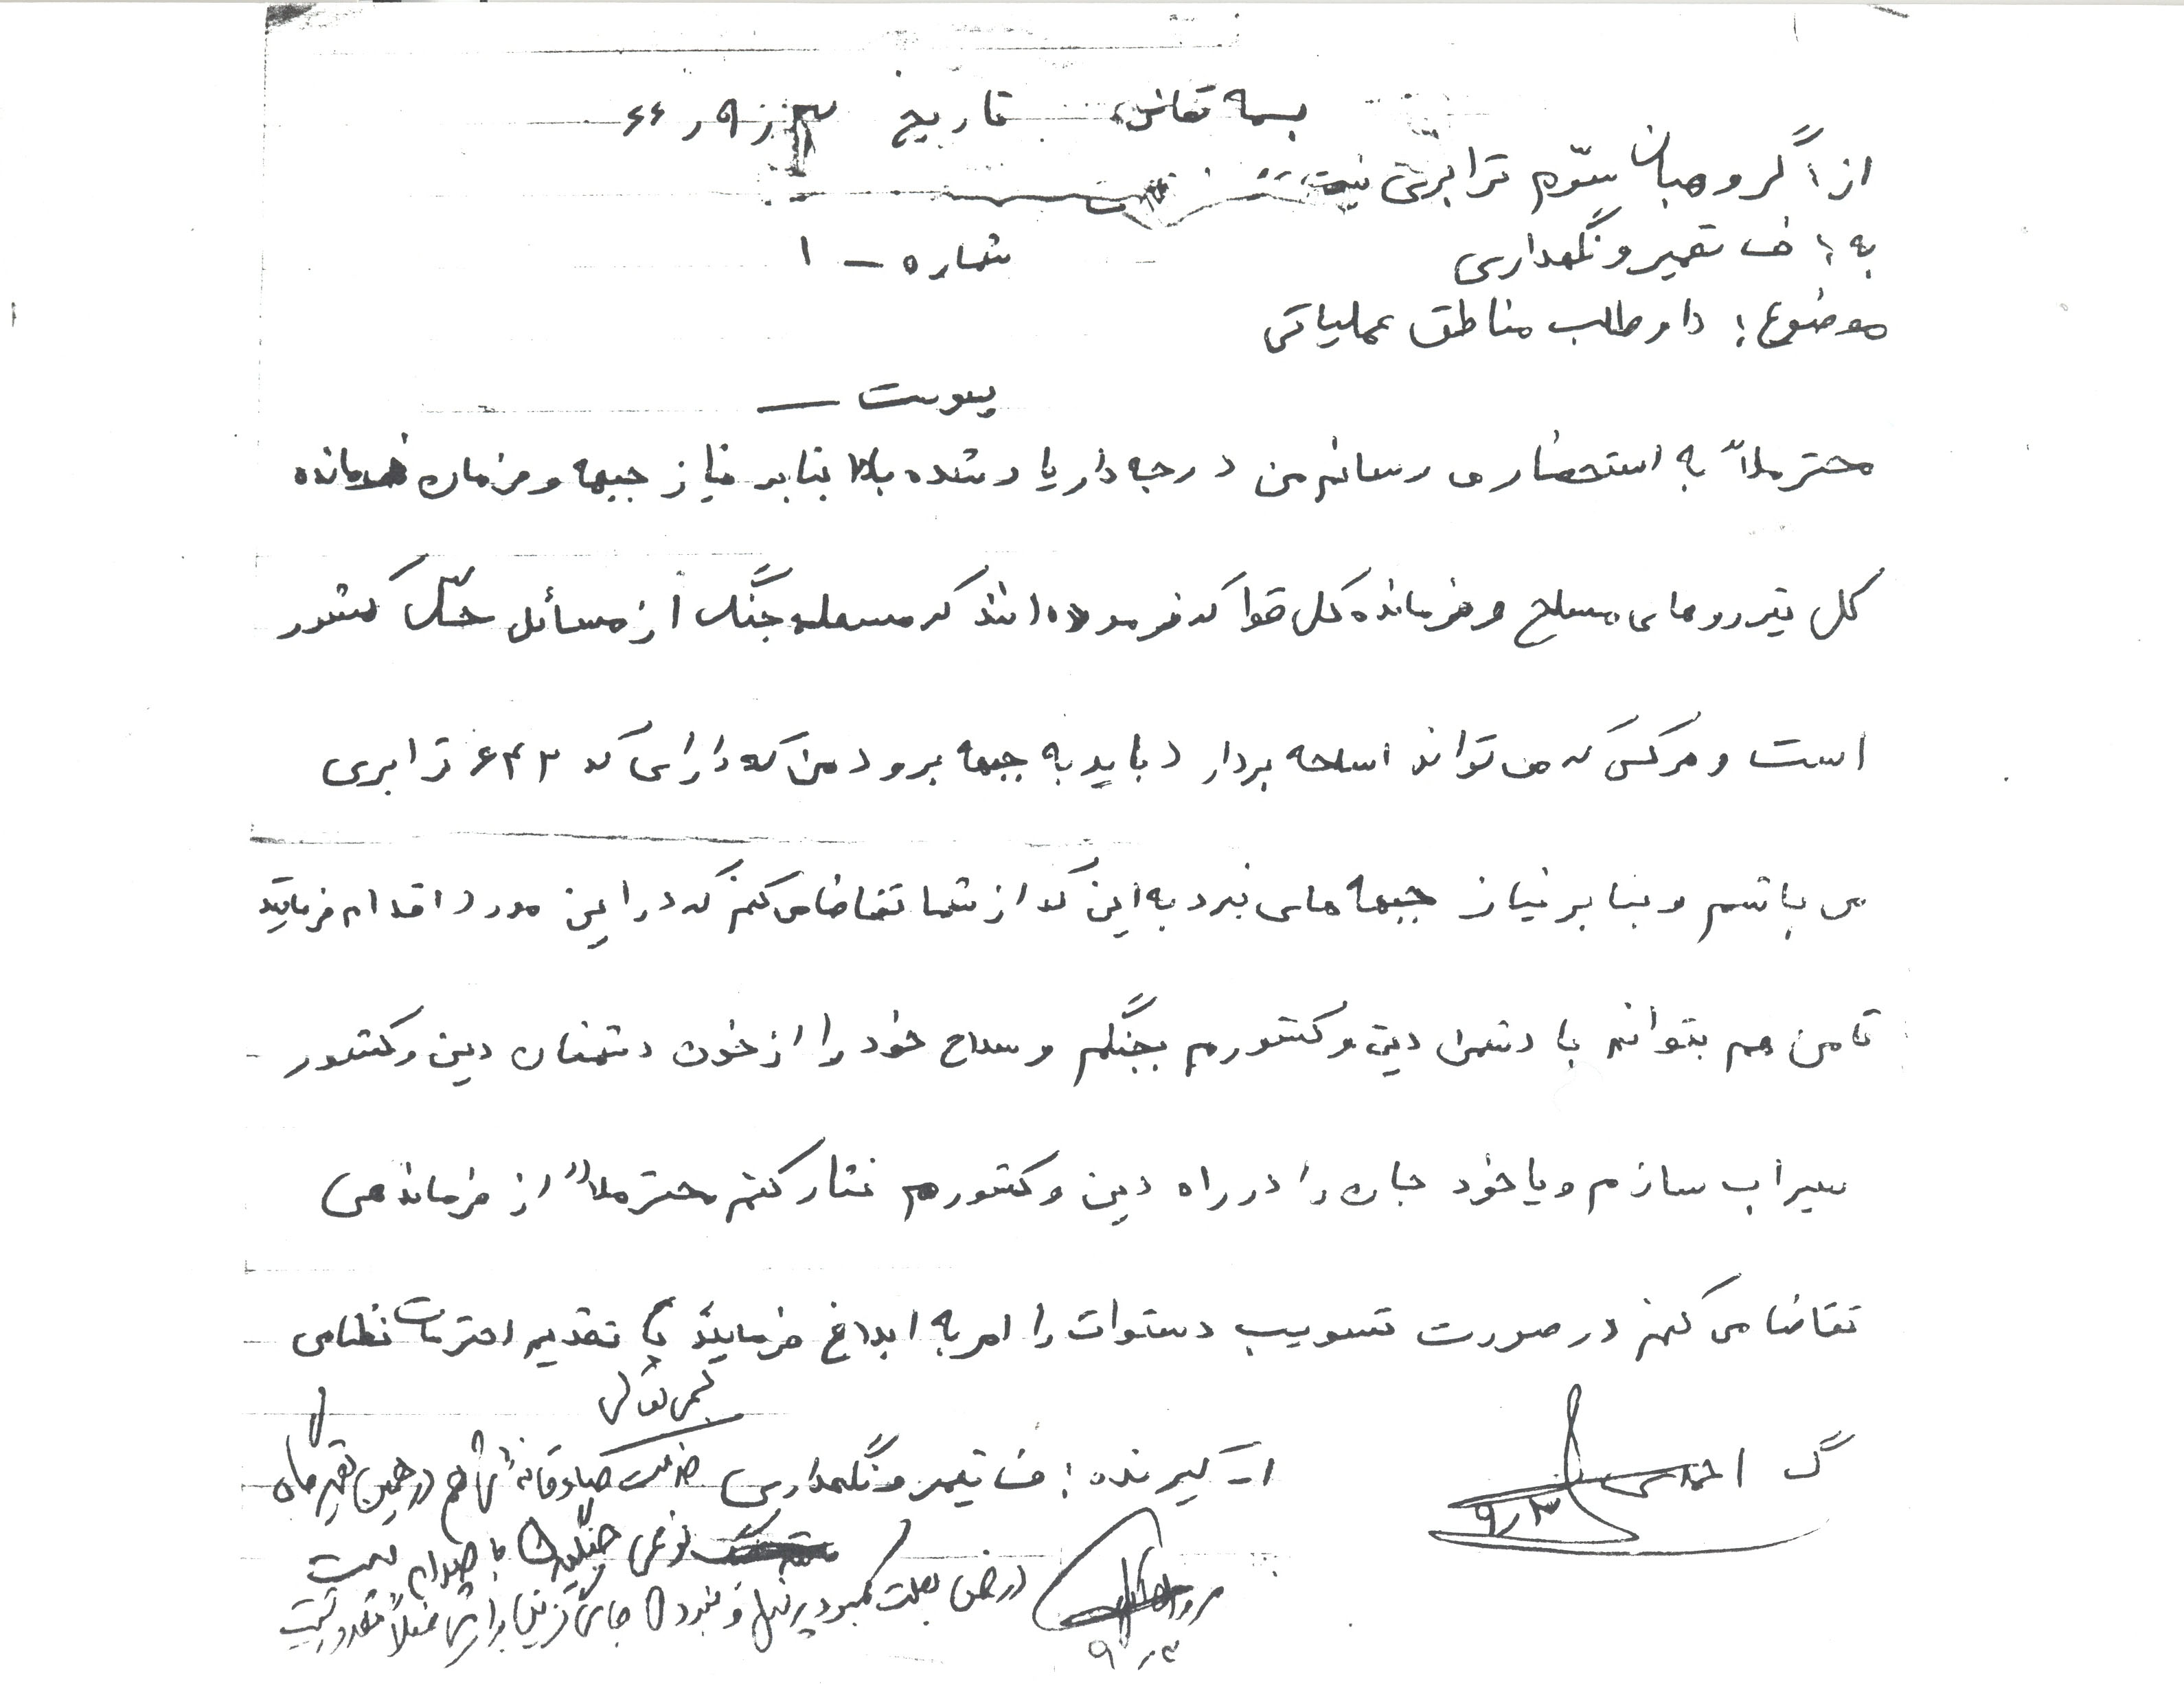 بسمه تعالی تاریخ ۶۶٫۹٫۳
از: گروهبان سوّم ترابری
به: ف تعمیر و نگهداری
شماره – ۱
موضوع: داوطلب مناطق عملیاتی
پیوست –
محترماً به استحضار می رسانم من درجه دار یاد شده بالا بنابر نیاز جبهه و فرمان فرمانده
کل نیرروهای مسلح و فرمانده کل قوا که فرموده اند که مسعله جنگ از مسائل حکّ کشور
است و هرکس که می تواند اسلحه بردارد باید به جبهه برود من که دارای کد ۶۴۳ ترابری
می باشم و بنا بر نیاز جبهه های نبرد به این کد از شما تقاضا می کنم که در این مورد اقدام فرمایید
تا من هم بتوانم با دشمن دین و کشورم بجنگم و سلاح خود را از خون دشمنان دین و کشور
سیراب سازم و یا خود جان را در راه دین و کشورم نثار کنم محترماً از فرماندهی
تقاضا می کنم در صورت تسویب دستوات را امر به ابلاغ فرمایید با تقدیم احترمات نظامی
گ احمدی
۹٫۳
بسمی تعالی
از گیرنده: ف تعمیر و نگهداری خدمت صادقانه شما هم در همین تعمیرگاه
نوعی جنگیدن با صدام است
در ضمن بعلت کمبود پرسنل و نبودن جای گزین برای شما فعلاً مقدور نیست
۹٫۳